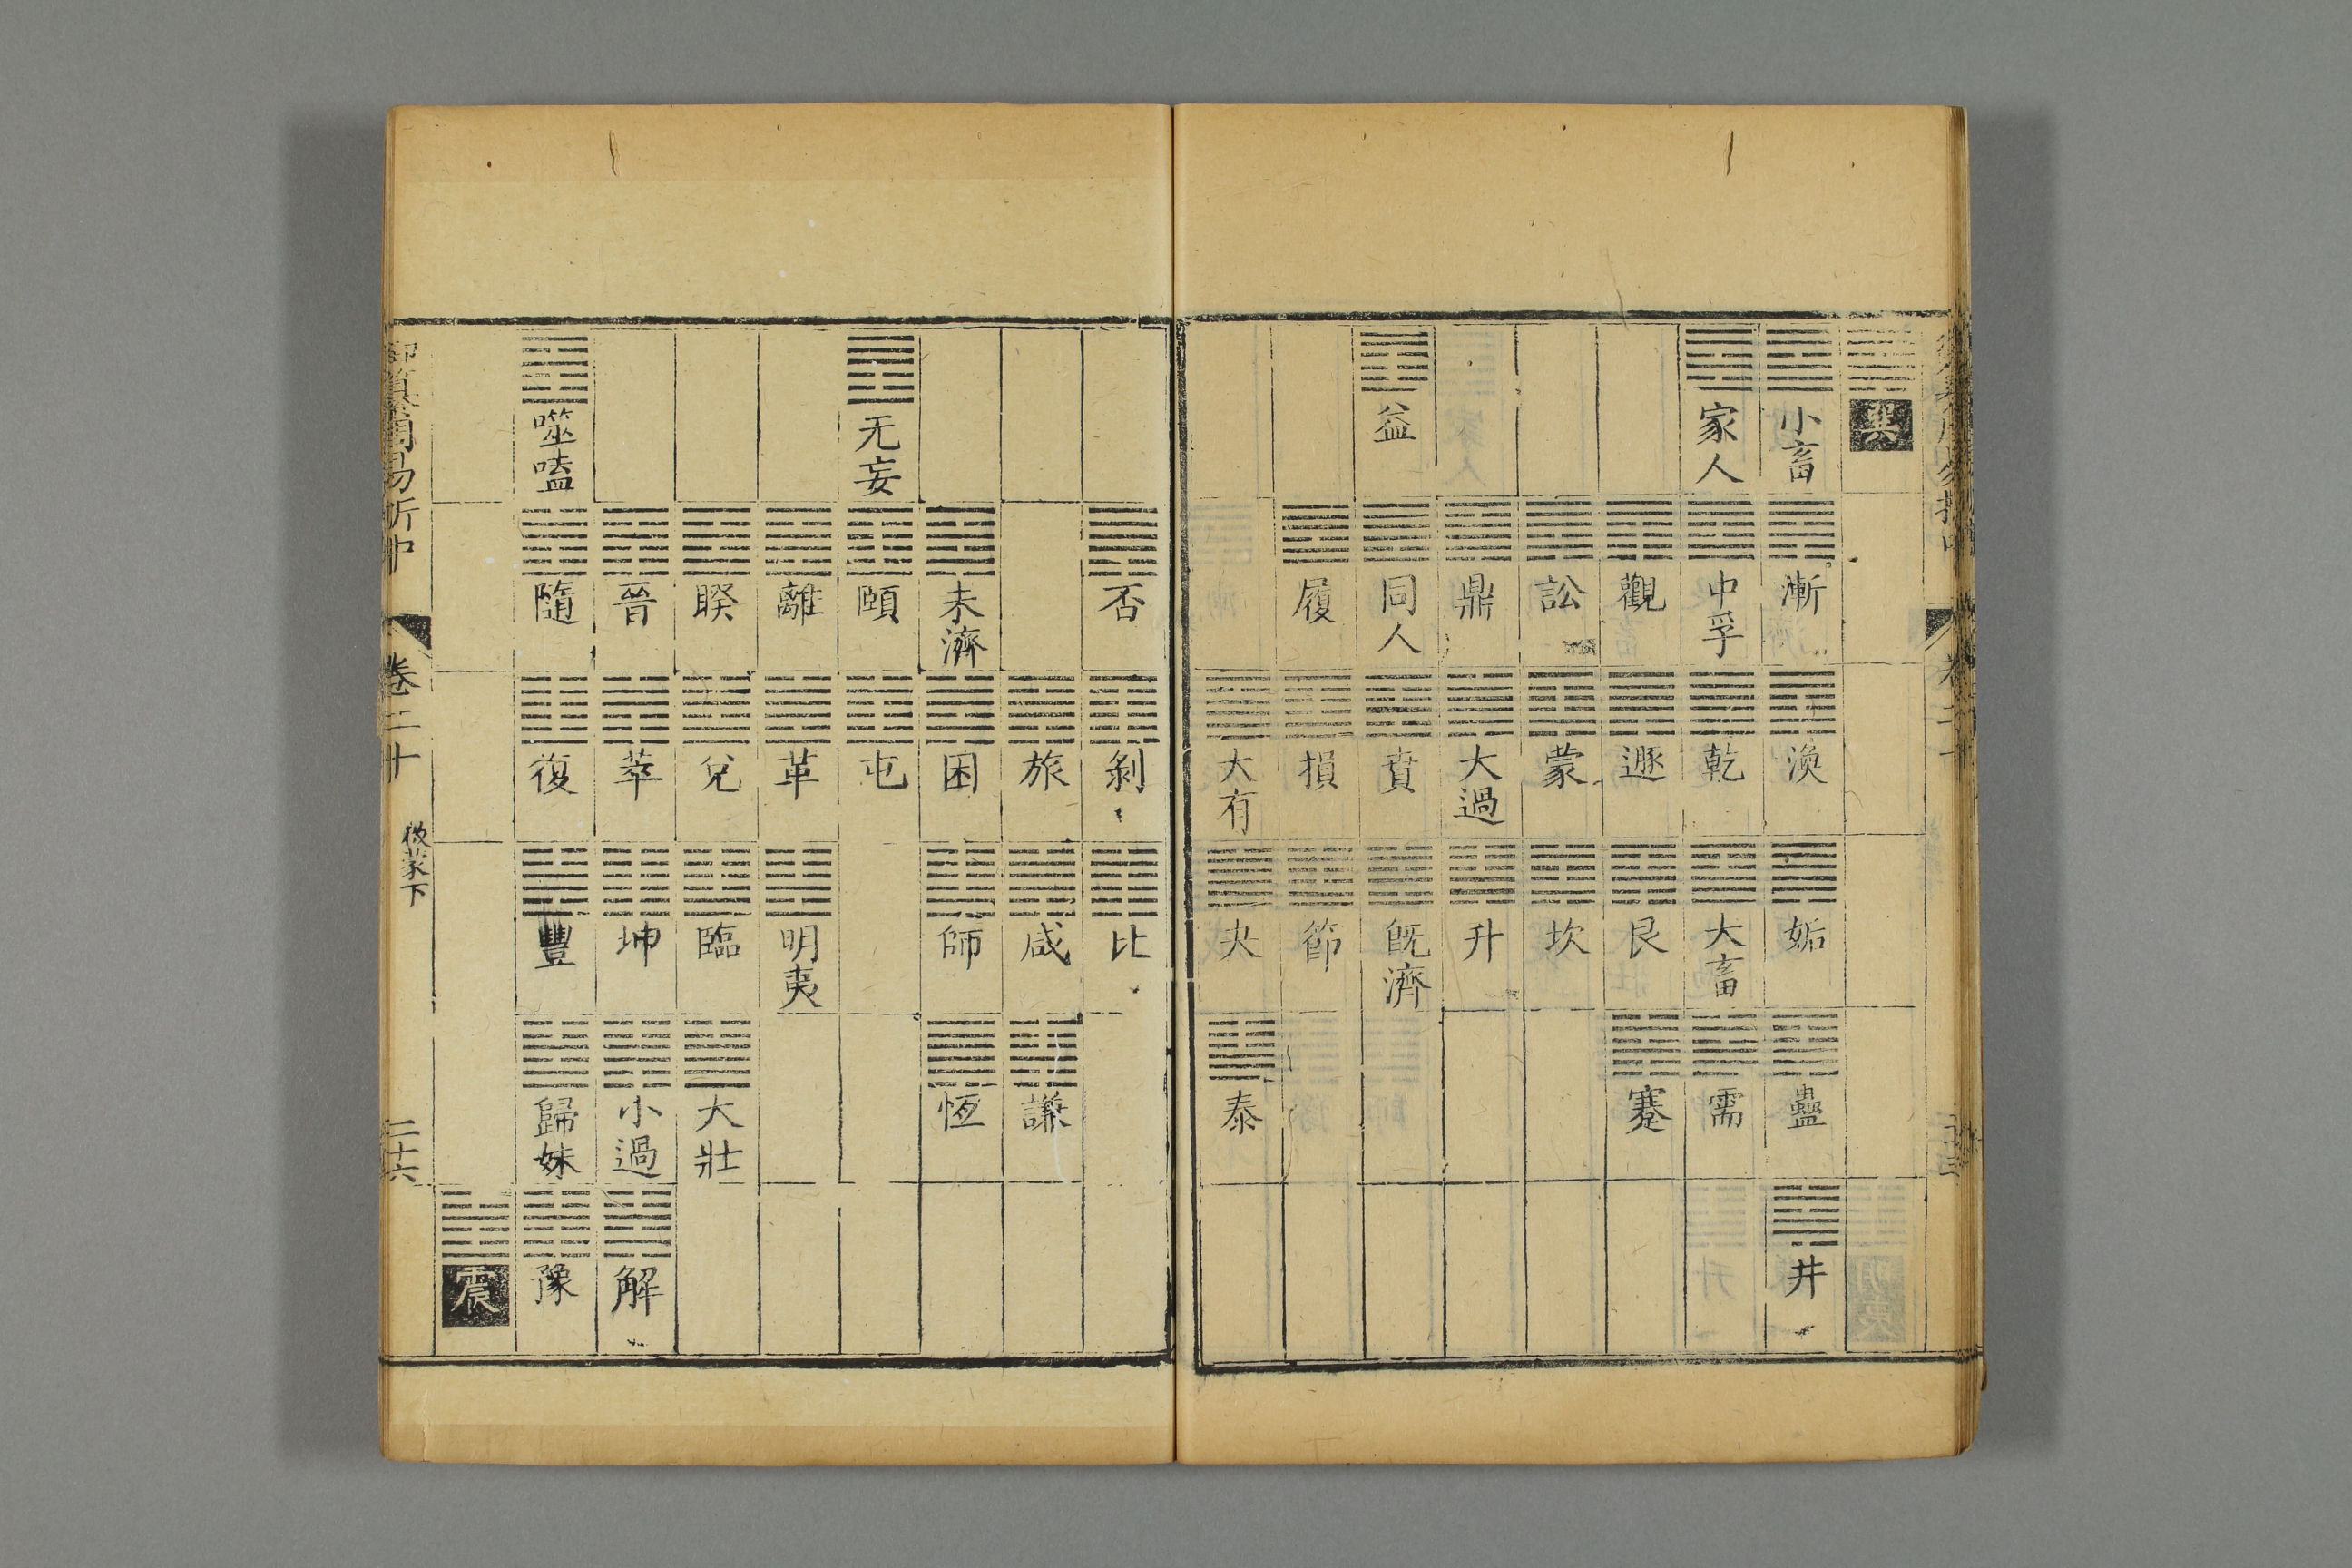 巽
小畜 漸 渙 姤 蠱 井
家人 中孚 乾 大畜 需
觀 遯 艮 蹇
訟 蒙 坎
鼎 大過 升
益 同人 賁 既濟
履 損 節
大有 夬 泰
否 剝 比
旅 咸 謙
未濟 困 師 恆
无妄 頤 屯
離 革 明夷
睽 兌 臨 大壯
晉 萃 坤 小過 解
噬嗑 隨 復 豐 歸妹 豫
震
御纂周易折中 卷二十 啟蒙下 二十六